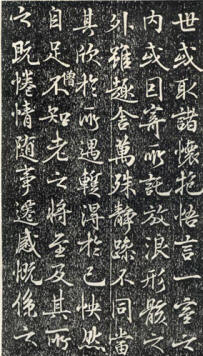 世或取諸懷抱悟言一室之
內或因寄所託放浪形骸之
外雖趣舍萬殊靜躁不同當
其欣於所遇蹔得於己怏然
僧
自足不知老之將至及其所
之既惓情隨事遷感慨係之